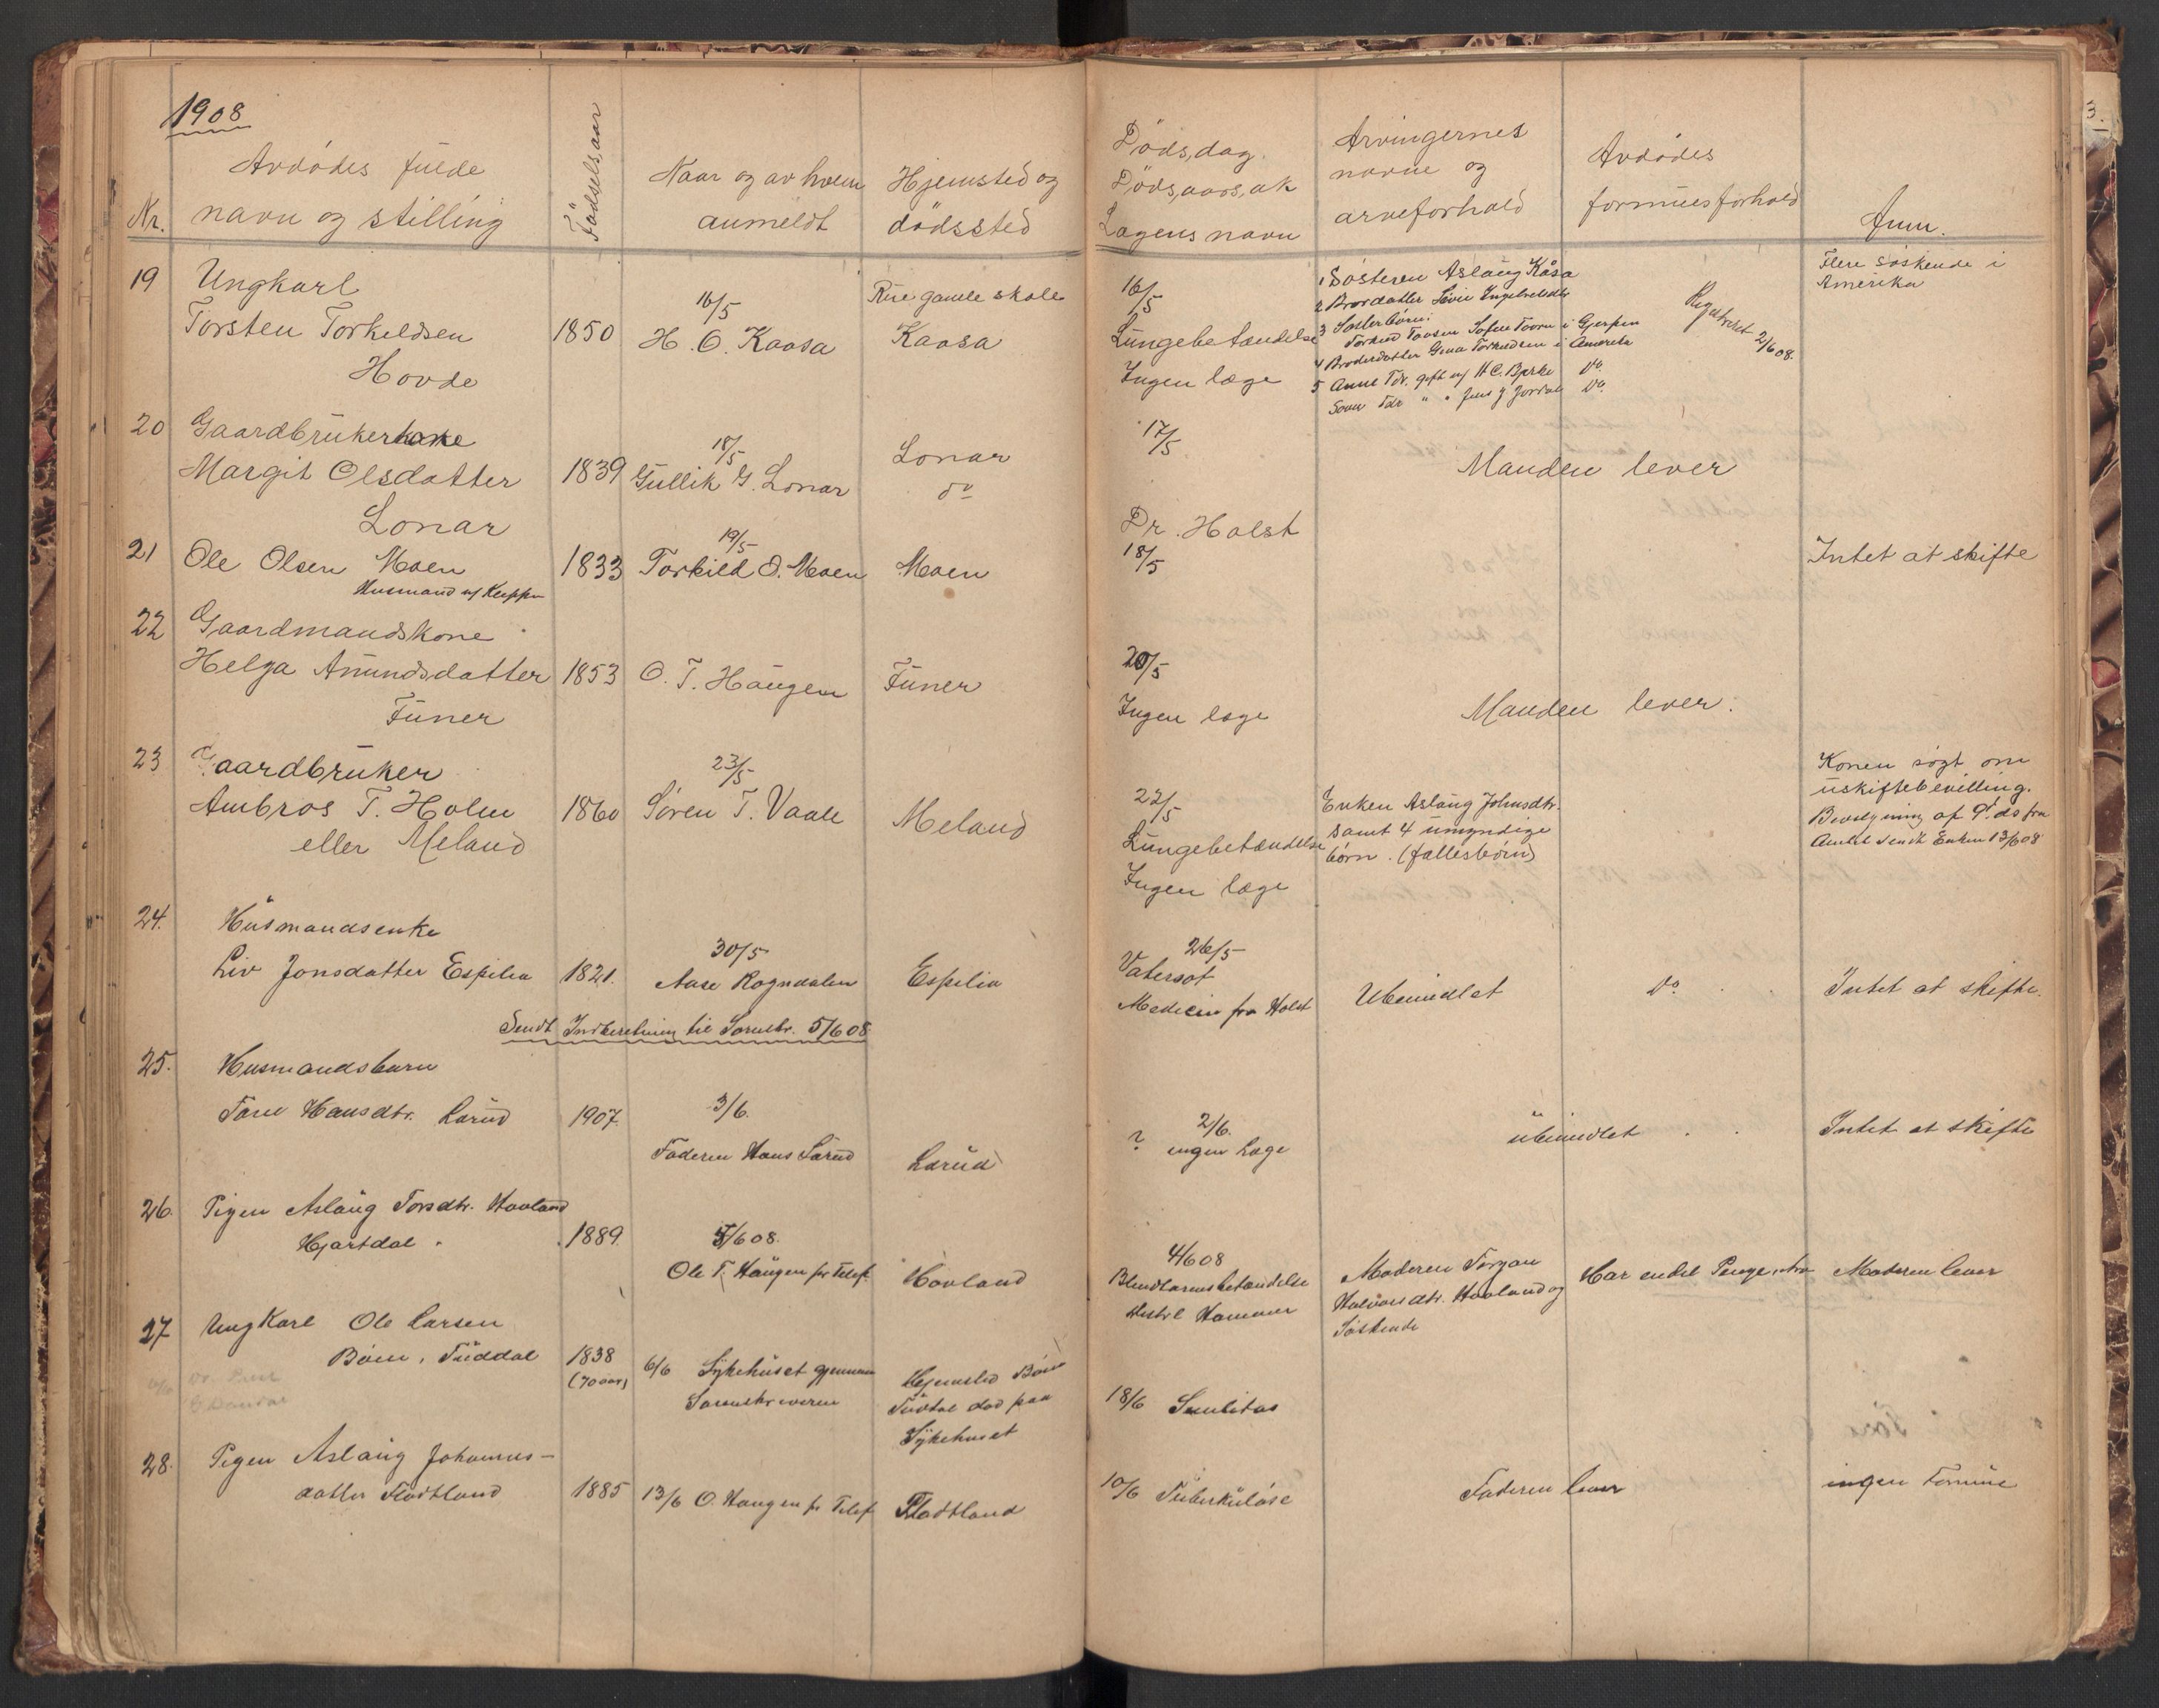 1908
Nr.
Avdödes fulde
navn og stilling
Födselsaar
Naar og av hvem
anmeldt
Hjemsted og
dödssted
Dödsdag.
Dödsaarsak
Lægens navn
Arvingernes
navne og
arveforhold
Avdödes
formuesforhold
Anm.
3.
19 Ungkarl
Torsten Torkeldsen
Hovde
1850
16/5
H. O. Kaasa
Rue gamle skole
Kaasa
16/5
Lungebetændelse
Ingen læge
1 Sösteren Aslaug Kåsa
2 Brordatter Ingebretsdtr
3 Søsterbörn:
Torkild Sofie i Gjerpen
4 Broderdatter Gina Torkildsen i Amerika
5 Anne Tdr. gift m/ H C. Bjerke Do.
Tdr " " Jens J Do.
Registreret 2/6 08.
Flere söskende i
Amerika
20 Gaardbrukerkone
Margit Olsdatter
Lonar
1839
18/5
Gullik G. Lonar
Lonar
do
17/5
Dr. Holst
Manden lever
21 Ole Olsen Moen
Husmand u/
1833
19/5
Torkild O. Moen
Moen
18/5
Intet at skifte
22 Gaardmandskone
Helga Amundsdatter
Funer
1853
O. T. Haugen
Funer
20/5
Ingen læge
Manden lever.
23 Gaardbruker
Ambros T. Holm
eller Meland
1860
23/5
Sören T. Vaale
Meland
22/5
Lungebetændelse
Ingen læge
Enken Aslaug Johnsdtr.
samt 4 umyndige
börn. (fællesbörn)
Konen sögt om
uskiftebevilling.
Bevilgning af 9. ds fra
Amtet sendt Enken 13/6 08
24. Husmandsenke
Liv Jonsdatter Espilia
1821.
30/5
Aase Rogndalen
Espilia
26/5
Vatersot
Medicin fra Holst
Ubemidlet
Do.
Intet at skifte.
Sendt Indberetning til Sornskr. 5/6 08
25. Husmandsbarn
Tone Hansdtr. Larud
1907.
3/6.
Faderen Hans Larud
Larud
2/6.
? ingen Læge
ubemidlet
Intet at skifte
26. Pigen Aslaug Torsdtr. Hovland
Hjartdal
1889.
5/6 08.
Ole T. Haugen pr Telef.
Hovland
4/6 08
Blindtarmsbetændelse
Distrl Hammer
Moderen Torgon
Halvorsdtr. Hovland og
Söskende
Har endel Penge
Moderen lever
27 Ungkarl Ole Larsen
Böen, Tuddal
1838
(70 aar)
6/6 Sykehuset gjennem
Sorenskriveren
Hjemsted Böen
Tuddal död paa
Sykehuset
18/6 Senilitas
28. Pigen Aslaug Johannes-
datter Fladtland
1885
13/6 O. Haugen pr Telef
Fladtland
10/6 Tuberkulose
Faderen lever
ingen Formue